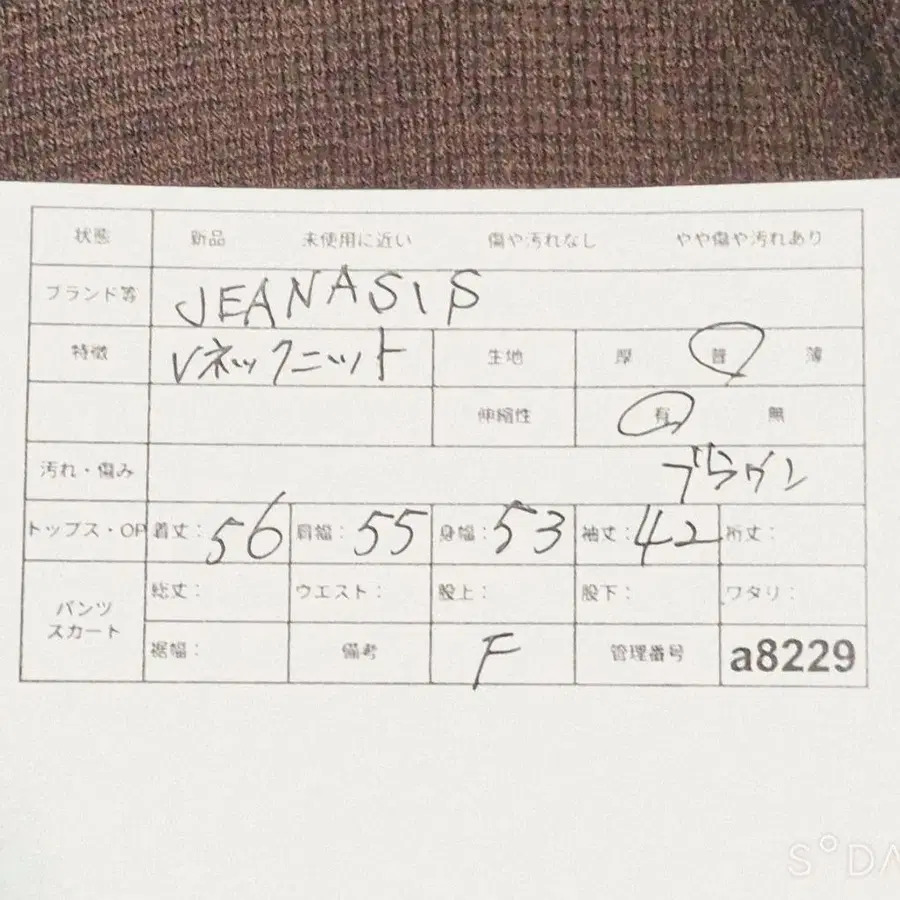 状態 新品 未使用に近い 傷や汚れなし やや傷や汚れあり
ブランド等 JEANASIS
特徴 Vネックニット 生地 厚 普 薄
伸縮性 有 無
汚れ・傷み ブラウン
トップス・OP 着丈: 56 肩幅: 55 身幅: 53 袖丈: 42 裄丈:
パンツ スカート 総丈: ウエスト: 股上: 股下: ワタリ:
裾幅: 備考 F 管理番号 a8229